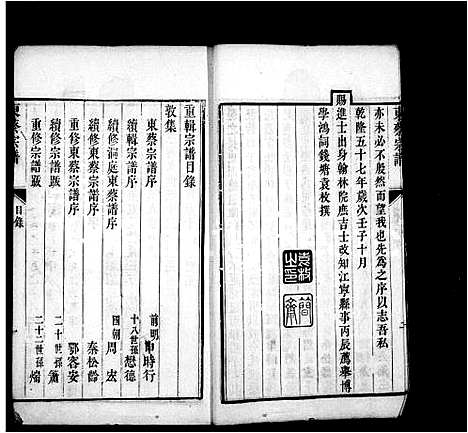 亦未必不殷然而望我也先為之序以志吾私
乾隆五十七年歲次壬子十月
賜進士出身翰林院庶吉士改知江寧縣事丙辰薦舉博
學鴻詞錢塘袁枚撰
袁枚之印
簡齋
東蔡宗譜
重輯宗譜目錄
敦集
東蔡宗譜序 前明 申時行
續輯宗譜序 十八世孫 懋德
續修洞庭東蔡譜序 國朝 周宏
續修東蔡宗譜序 秦松齡
重修宗譜序 鄂容安
續修宗譜跋 二十世孫 簫
重修宗譜跋 二十二世孫 焴
東蔡宗譜
目錄